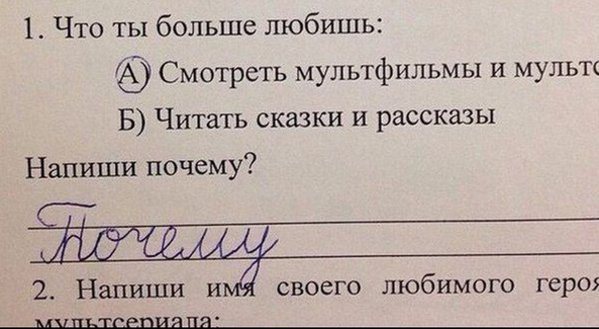 1. Что ты больше любишь:
А) Смотреть мультфильмы и
Б) Читать сказки и рассказы
Напиши почему?
Почему
2. Напиши имя своего любимого героя
мультсериала: